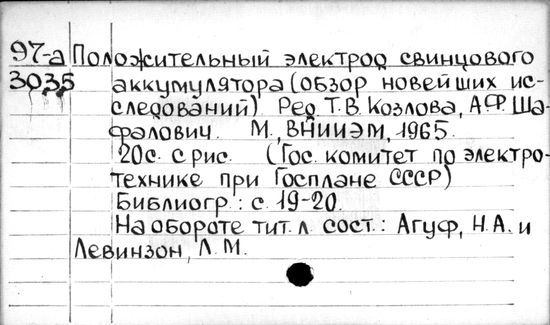 97-а Положительный электрод свинцового
3035 аккумулятора (обзор новейших ис-
следований) Ред. Т.В. Козлова, А.Ф. Ша-
фалович. М., ВНИИЭМ, 1965.
20с. с рис. (Гос. комитет по электро-
технике при Госплане СССР)
Библиогр.: с. 19-20.
На обороте тит. л. сост.: Агуф, Н.А. и
Левинзон, Л.М.